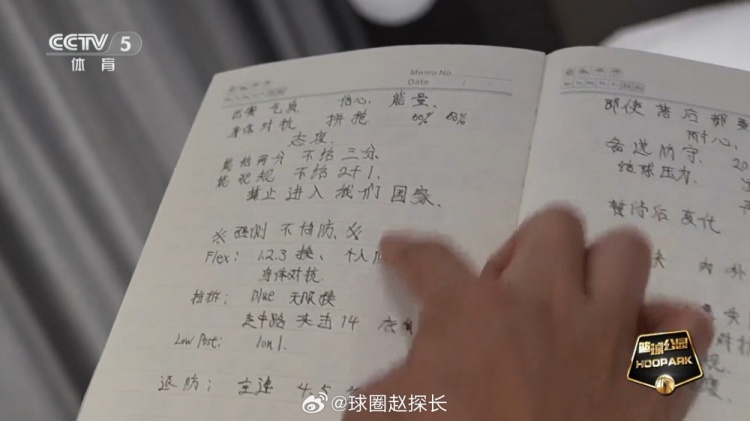 CCTV 5
体育
Memo No.
Date
比赛 气质 信心. 能量.
身体对抗 拼抢 60% 68%
态度.
能给两分 不给三分.
能犯规 不给2+1.
禁止进入我们国家.
※ 强侧 不协防. ※
Flex: 1.2.3 换、个人
身体对抗.
挡拆: blue 无限换
走中路 夹击14
Low Post: 1on1.
退防: 
4.5
即使落后都要
耐心.
各送防守. 20
给球压力.
暂停后 变化
篮球公园
HOOPARK
@球圈赵探长